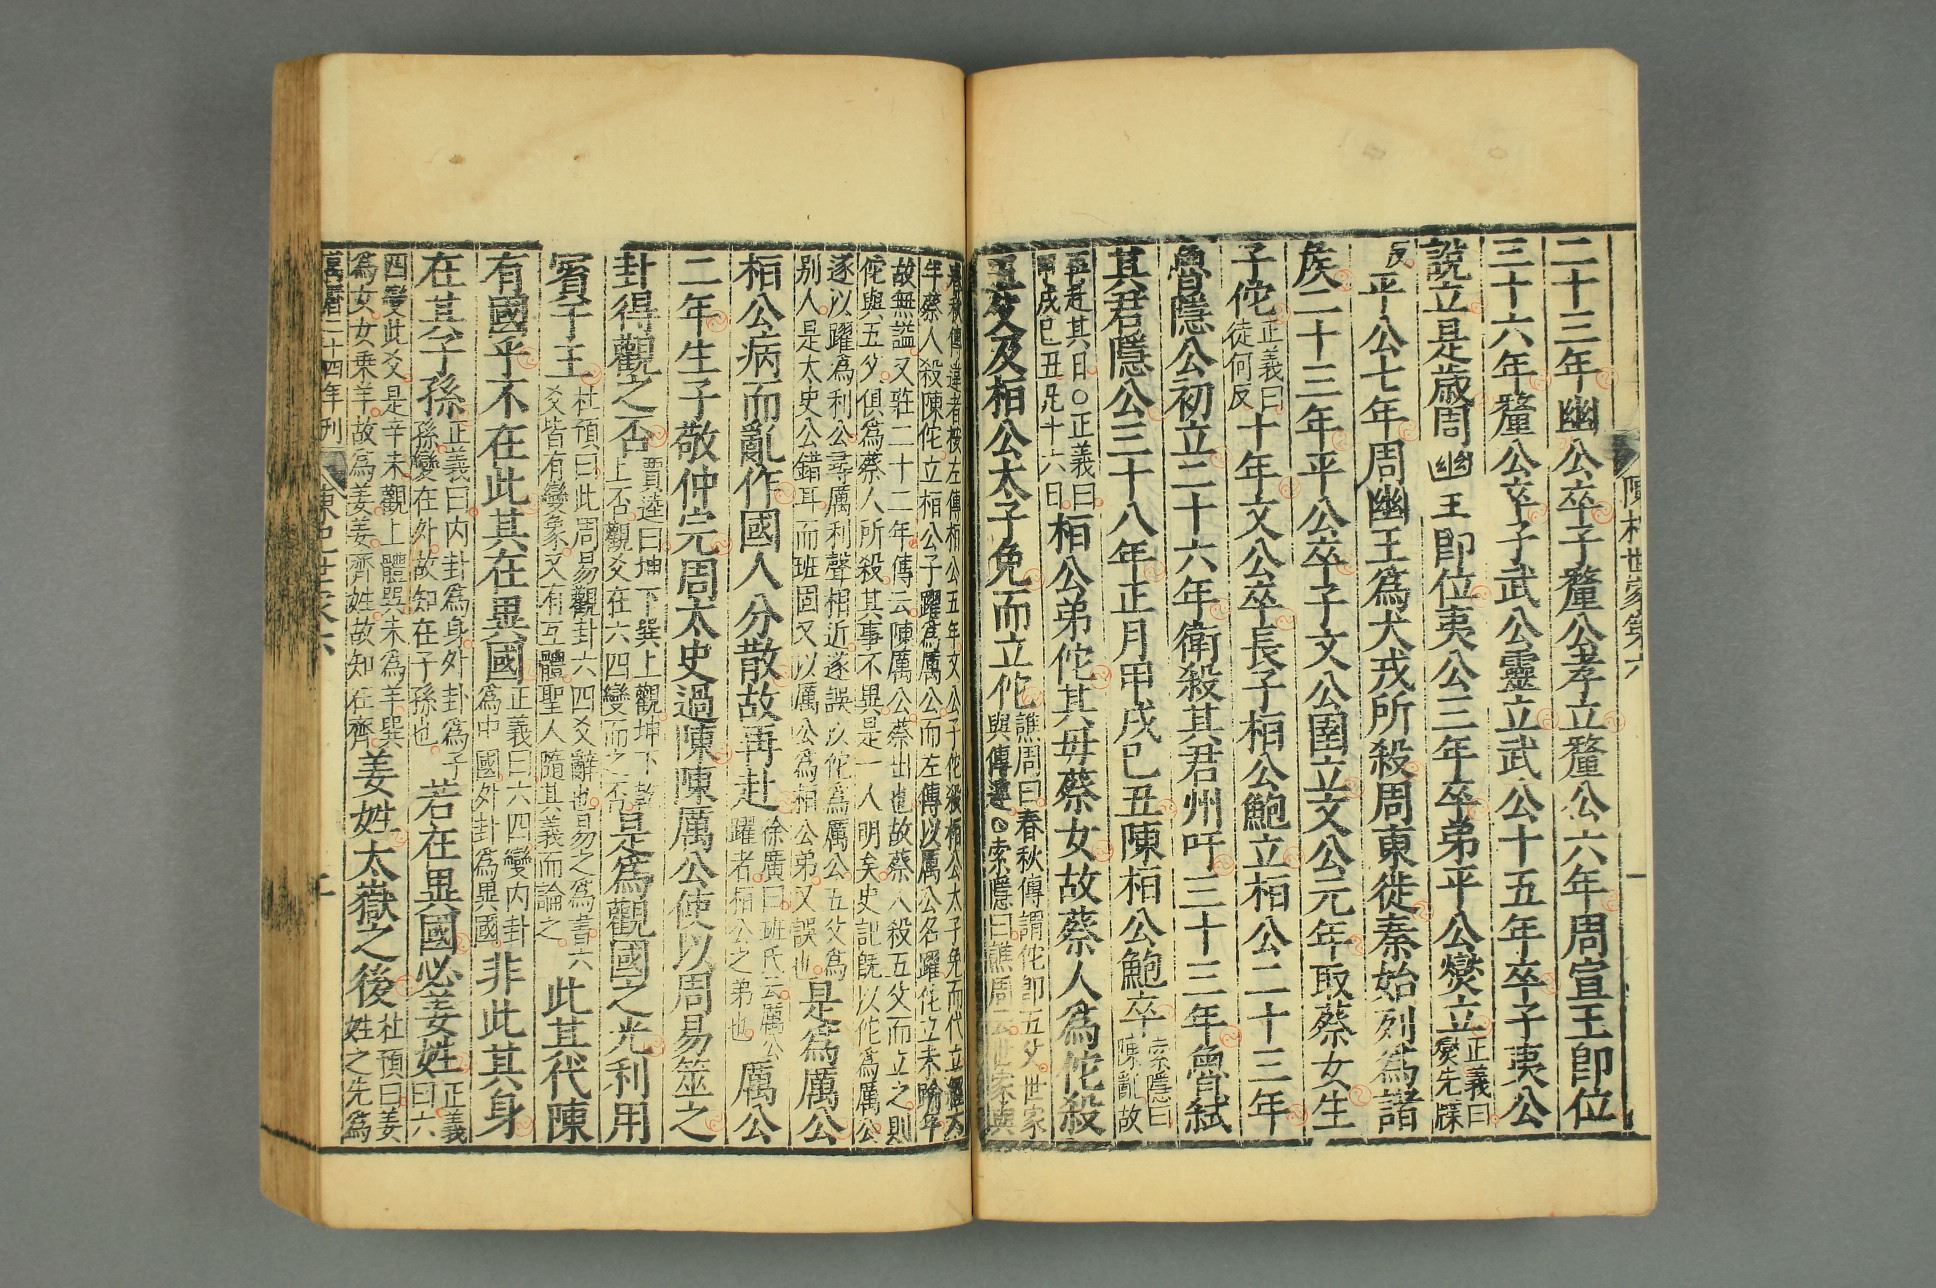 陳杞世家第六
二十三年幽公卒子釐公孝立釐公六年周宣王即位
三十六年釐公卒子武公靈立武公十五年卒子夷公
說立是歲周幽王即位夷公三年卒弟平公燮立正義曰燮先牒
反平公七年周幽王爲犬戎所殺周東徙秦始列爲諸
侯二十三年平公卒子文公圉立文公元年取蔡女生
子佗正義曰徒何反十年文公卒長子桓公鮑立桓公二十三年
魯隱公初立二十六年衛殺其君州吁三十三年魯弒
其君隱公三十八年正月甲戌己丑陳桓公鮑卒索隱曰陳亂故
再赴其日○正義曰甲戌己丑凡十六日桓公弟佗其母蔡女故蔡人爲佗殺
五父及桓公太子免而立佗譙周曰春秋傳謂佗即五父世家與傳違○索隱曰譙周云世家與
春秋傳違者按左傳桓公五年文公子佗殺桓公太子免而代立經六
年蔡人殺陳佗立桓公子躍爲厲公而左傳以厲公名躍佗立未踰年
故無謚又莊二十二年傳云陳厲公蔡出也故蔡人殺五父而立之則
佗與五父俱爲蔡人所殺其事不異是一人明矣史記旣以佗爲厲公
遂以躍爲利公尋厲利聲相近遂誤以佗爲厲公五父爲
別人是太史公錯耳而班固又以厲公爲桓公弟又誤也是爲厲公
桓公病而亂作國人分散故再赴徐廣曰班氏云厲公躍者桓公之弟也厲公
二年生子敬仲完周太史過陳陳厲公使以周易筮之
卦得觀之否賈逵曰坤下巽上觀坤下乾上否觀爻在六四變而之否是爲觀國之光利用
賓于王杜預曰此周易觀卦六四爻辭也易之爲書六爻皆有變象又有互體聖人隨其義而論之此其代陳
有國乎不在此其在異國正義曰六四變内卦爲中國外卦爲異國非此其身
在其子孫正義曰内卦爲身外卦爲子孫變在外故知在子孫也若在異國必姜姓正義曰六
四變此爻是辛未觀上體巽未爲羊巽
爲女女乘羊故爲姜姜齊姓故知在齊姜姓太嶽之後杜預曰姜姓之先爲